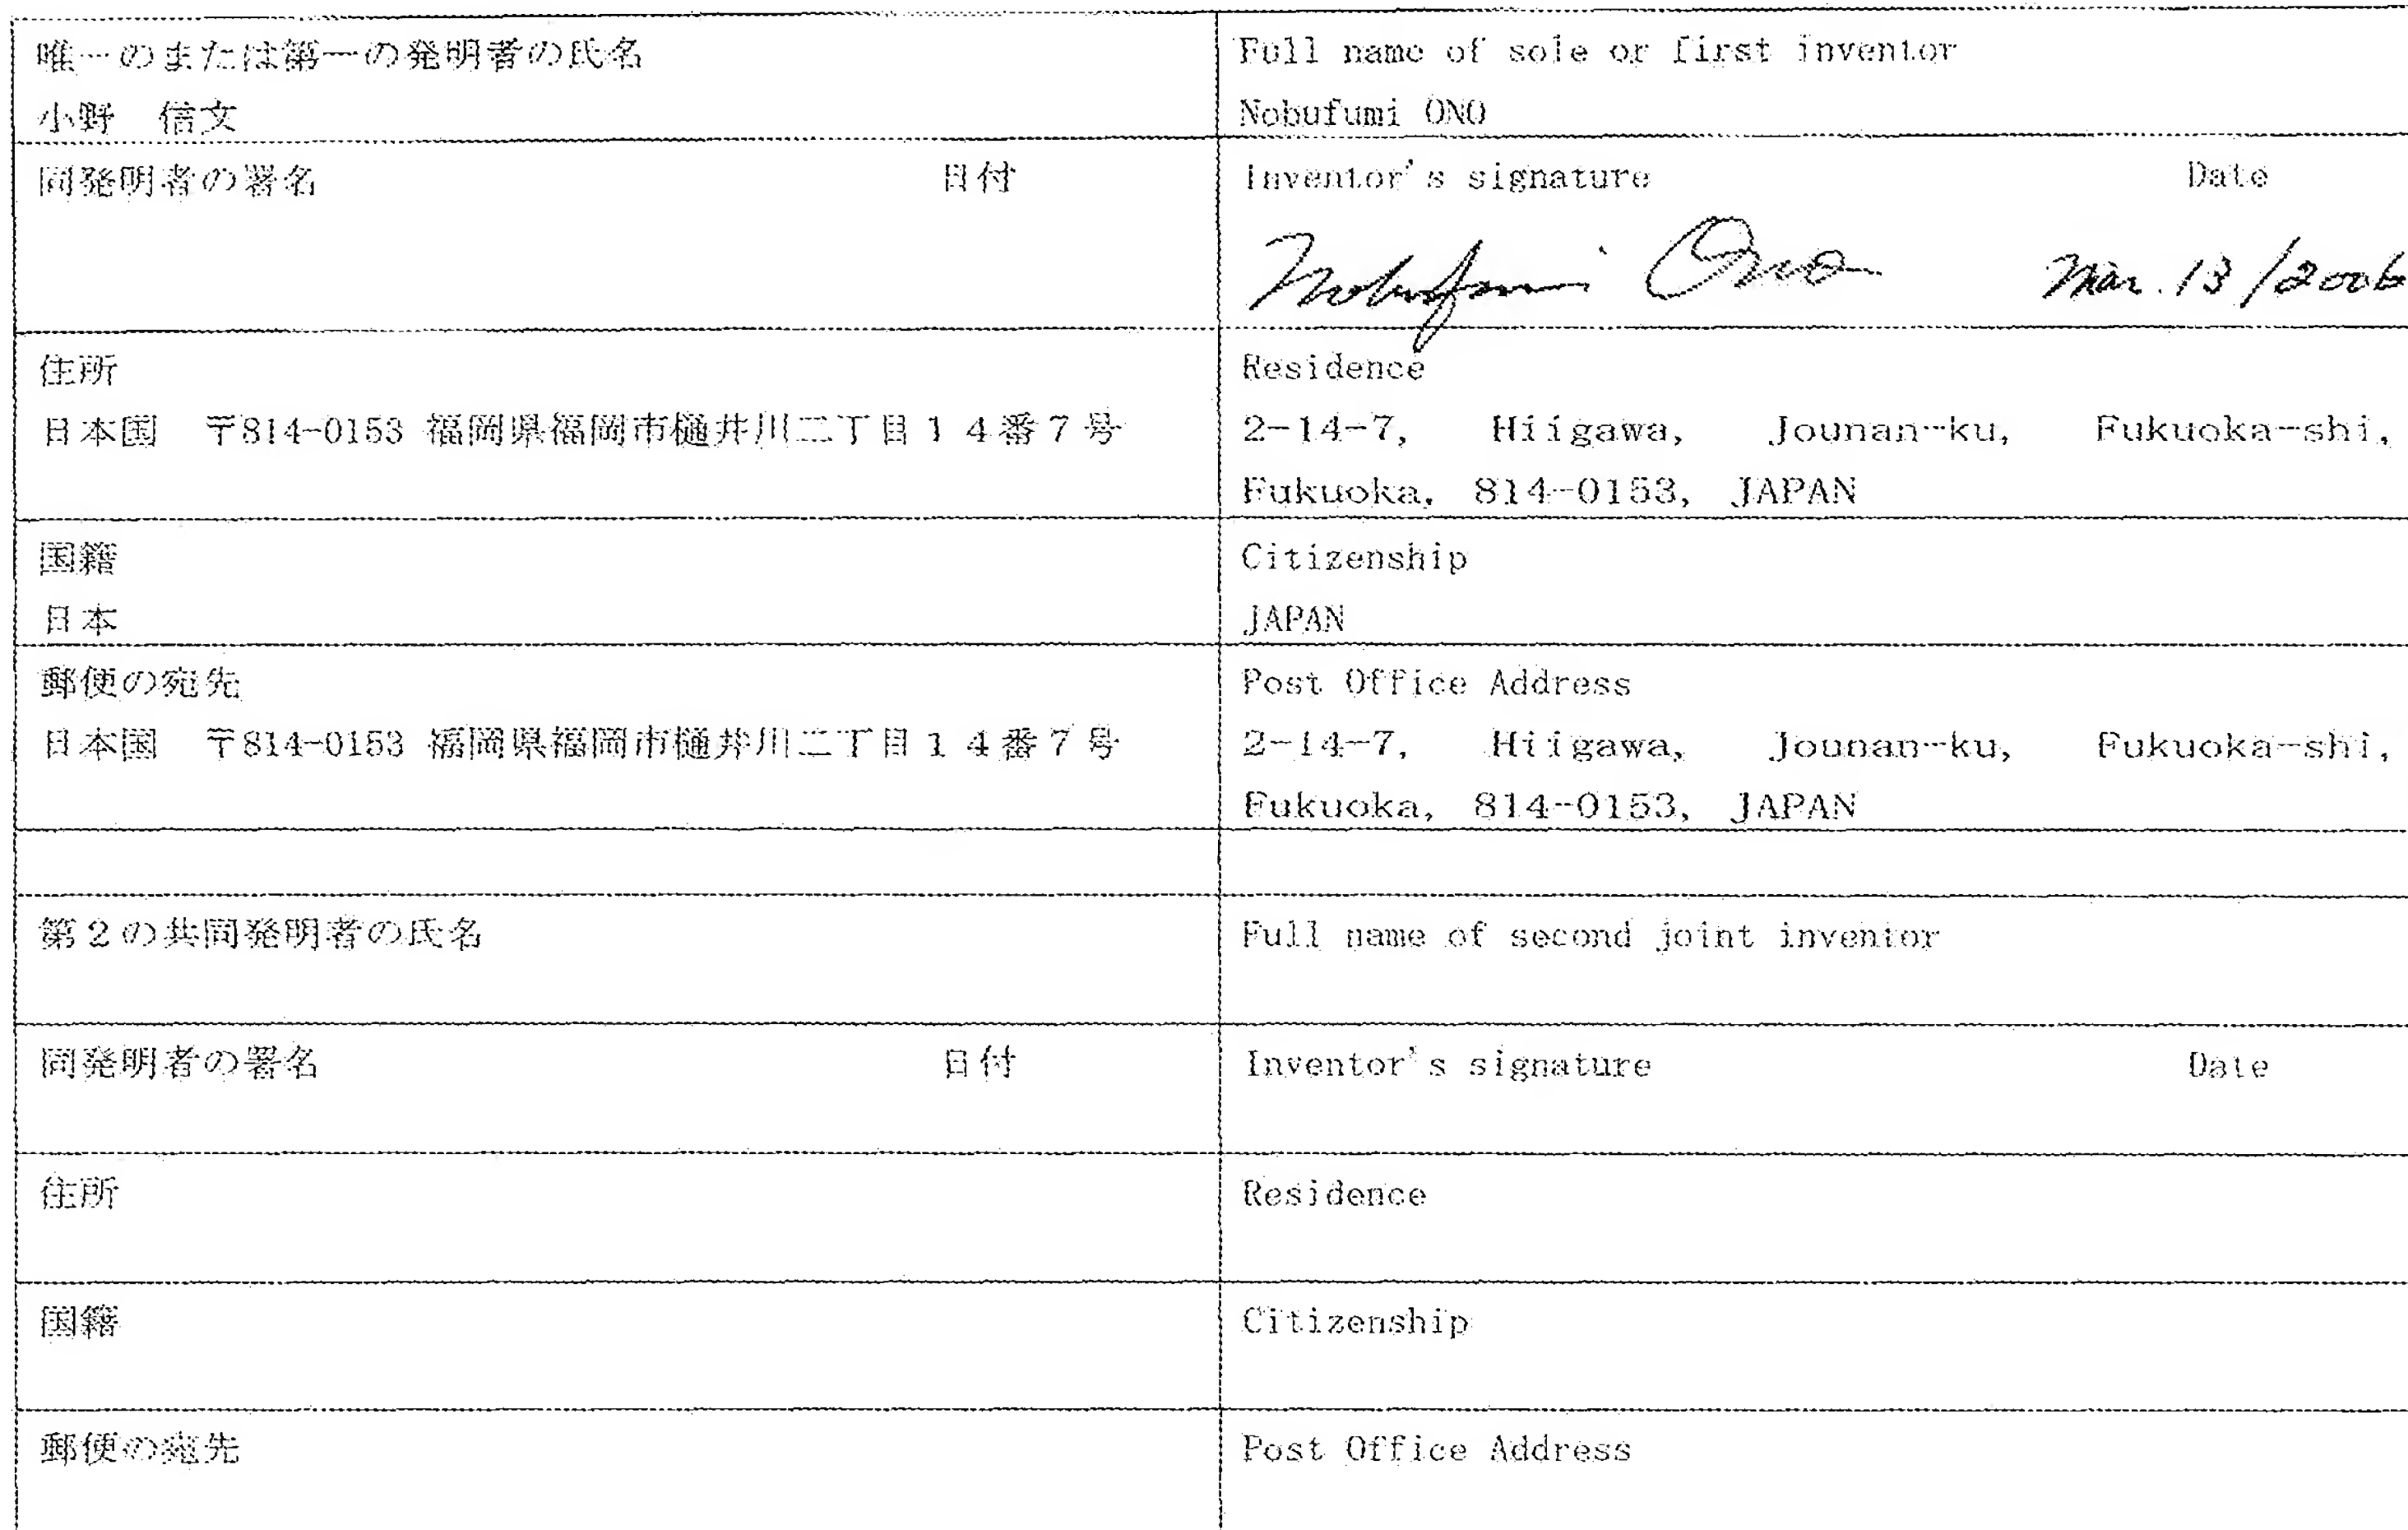 唯一のまたは第一の発明者の氏名
Full name of sole or first inventor
小野　信文
Nobufumi ONO
同発明者の署名　日付
Inventor's signature Date
Nobufumi Ono Mar. 13/2006
住所
Residence
日本国　〒814-0153 福岡県福岡市樋井川二丁目１４番７号
2-14-7, Hiigawa, Jounan-ku, Fukuoka-shi,
Fukuoka, 814-0153, JAPAN
国籍
Citizenship
日本
JAPAN
郵便の宛先
Post Office Address
日本国　〒814-0153 福岡県福岡市樋井川二丁目１４番７号
2-14-7, Hiigawa, Jounan-ku, Fukuoka-shi,
Fukuoka, 814-0153, JAPAN
第２の共同発明者の氏名
Full name of second joint inventor
同発明者の署名　日付
Inventor's signature Date
住所
Residence
国籍
Citizenship
郵便の宛先
Post Office Address